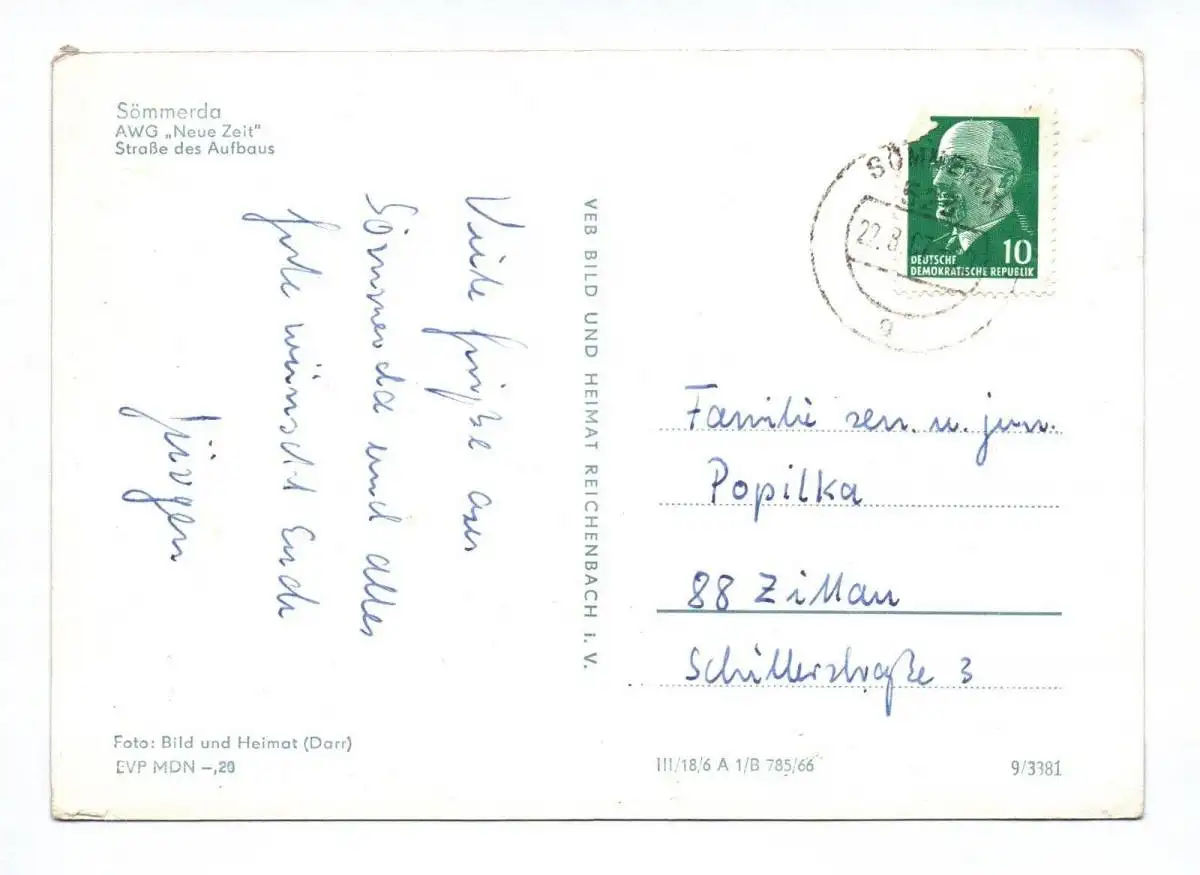 Sömmerda
AWG „Neue Zeit"
Straße des Aufbaus
Viele Grüße aus
Sömmerda und alles
Gute wünscht Euch
Jürgen
VEB BILD UND HEIMAT REICHENBACH I. V.
SÖMMERDA
22.8.
g
10
DEUTSCHE
DEMOKRATISCHE REPUBLIK
Familie sen. u. jun.
Popilka
88 Zittau
Schillerstraße 3
Foto: Bild und Heimat (Darr)
EVP MDN –,20
III/18/6 A 1/B 785/66
9/3381